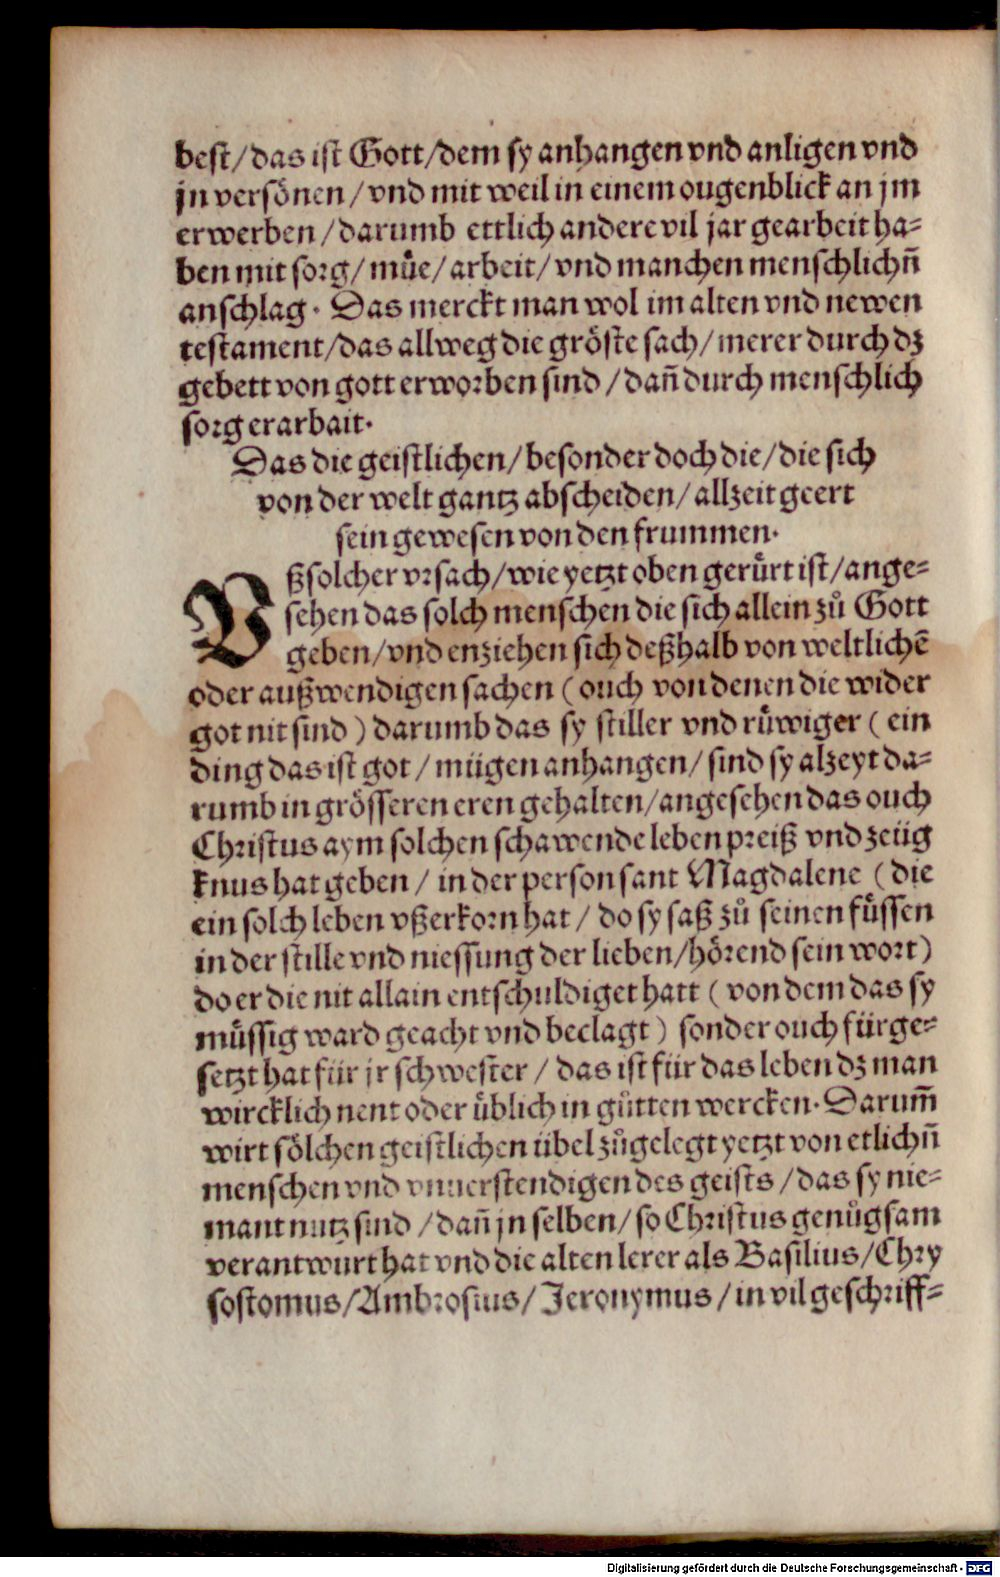 best/das ist Gott/dem sy anhangen vnd anligen vnd
jn versönen/vnd mit weil in einem ougenblick an jm
erwerben/darumb ettlich andere vil jar gearbeit ha=
ben mit sorg/müe/arbeit/vnd manchen menschlichñ
anschlag. Das merckt man wol im alten vnd newen
testament/das allweg die gröste sach/merer durch dz
gebett von gott erworben sind/dañ durch menschlich
sorg erarbait.
Das die geistlichen/besonder doch die/die sich
von der welt gantz abscheiden/allzeit geert
sein gewesen von den frummen.
Vß solcher vrsach/wie yetzt oben gerürt ist/ange=
sehen das solch menschen die sich allein zů Gott
geben/vnd enziehen sich deßhalb von weltlichẽ
oder außwendigen sachen (ouch von denen die wider
got nit sind) darumb das sy stiller vnd rüwiger (ein
ding das ist got/mügen anhangen/sind sy alzeyt da=
rumb in grösseren eren gehalten/angesehen das ouch
Christus aym solchen schawende leben preiß vnd zeüg
knus hat geben/in der person sant Magdalene (die
ein solch leben vßerkorn hat/do sy saß zů seinen füssen
in der stille vnd niessung der lieben/hörend sein wort)
do er die nit allain entschuldiget hatt (von dem das sy
müssig ward geacht vnd beclagt) sonder ouch fürge=
setzt hat für jr schwester/das ist für das leben dz man
wircklich nent oder üblich in gůtten wercken. Darum̃
wirt sölchen geistlichen übel zůgelegt yetzt von etlichñ
menschen vnd vnuerstendigen des geists/das sy nie=
mant nutz sind/dañ jn selben/so Christus genůgsam
verantwurt hat vnd die alten lerer als Basilius/Chry
sostomus/Ambrosius/Jeronymus/in vil geschriff=
Digitalisierung gefördert durch die Deutsche Forschungsgemeinschaft - DFG